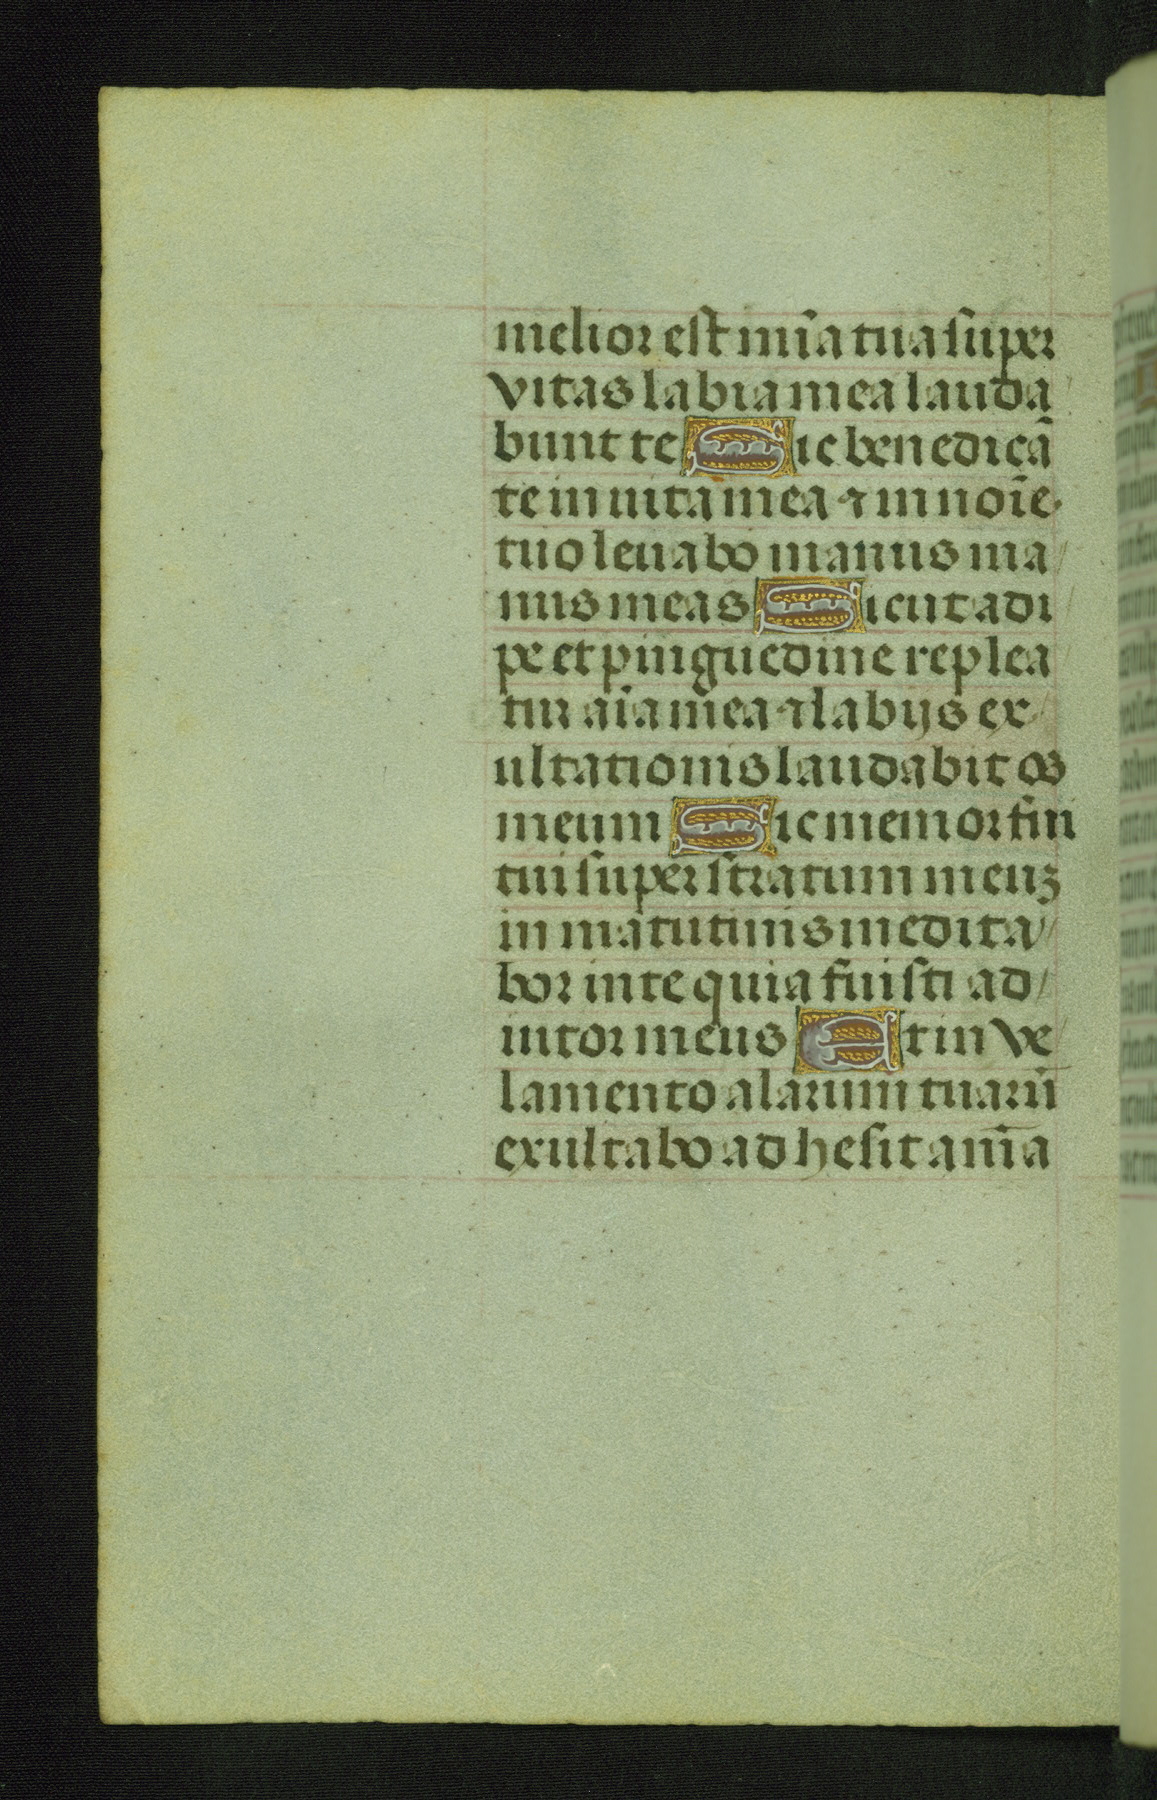 melior est mīa tua super
vitas labia mea lauda
bunt te Sic benedicā
te in uita mea ⁊ in noīe
tuo leuabo manus ma
nus meas Sicut adi
pe et pinguedine replea
tur aīa mea ⁊ labijs ex
ultationis laudabit os
meum Sic memor fui
tui super stratum meuꝫ
in matutinis medita
bor in te quia fuisti ad
iutor meus Et in ve
lamento alarum tuarū
exultabo adhesit anīa